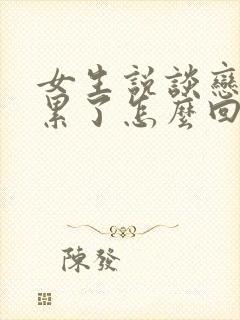 女生說談戀
累了怎麼回
陳發